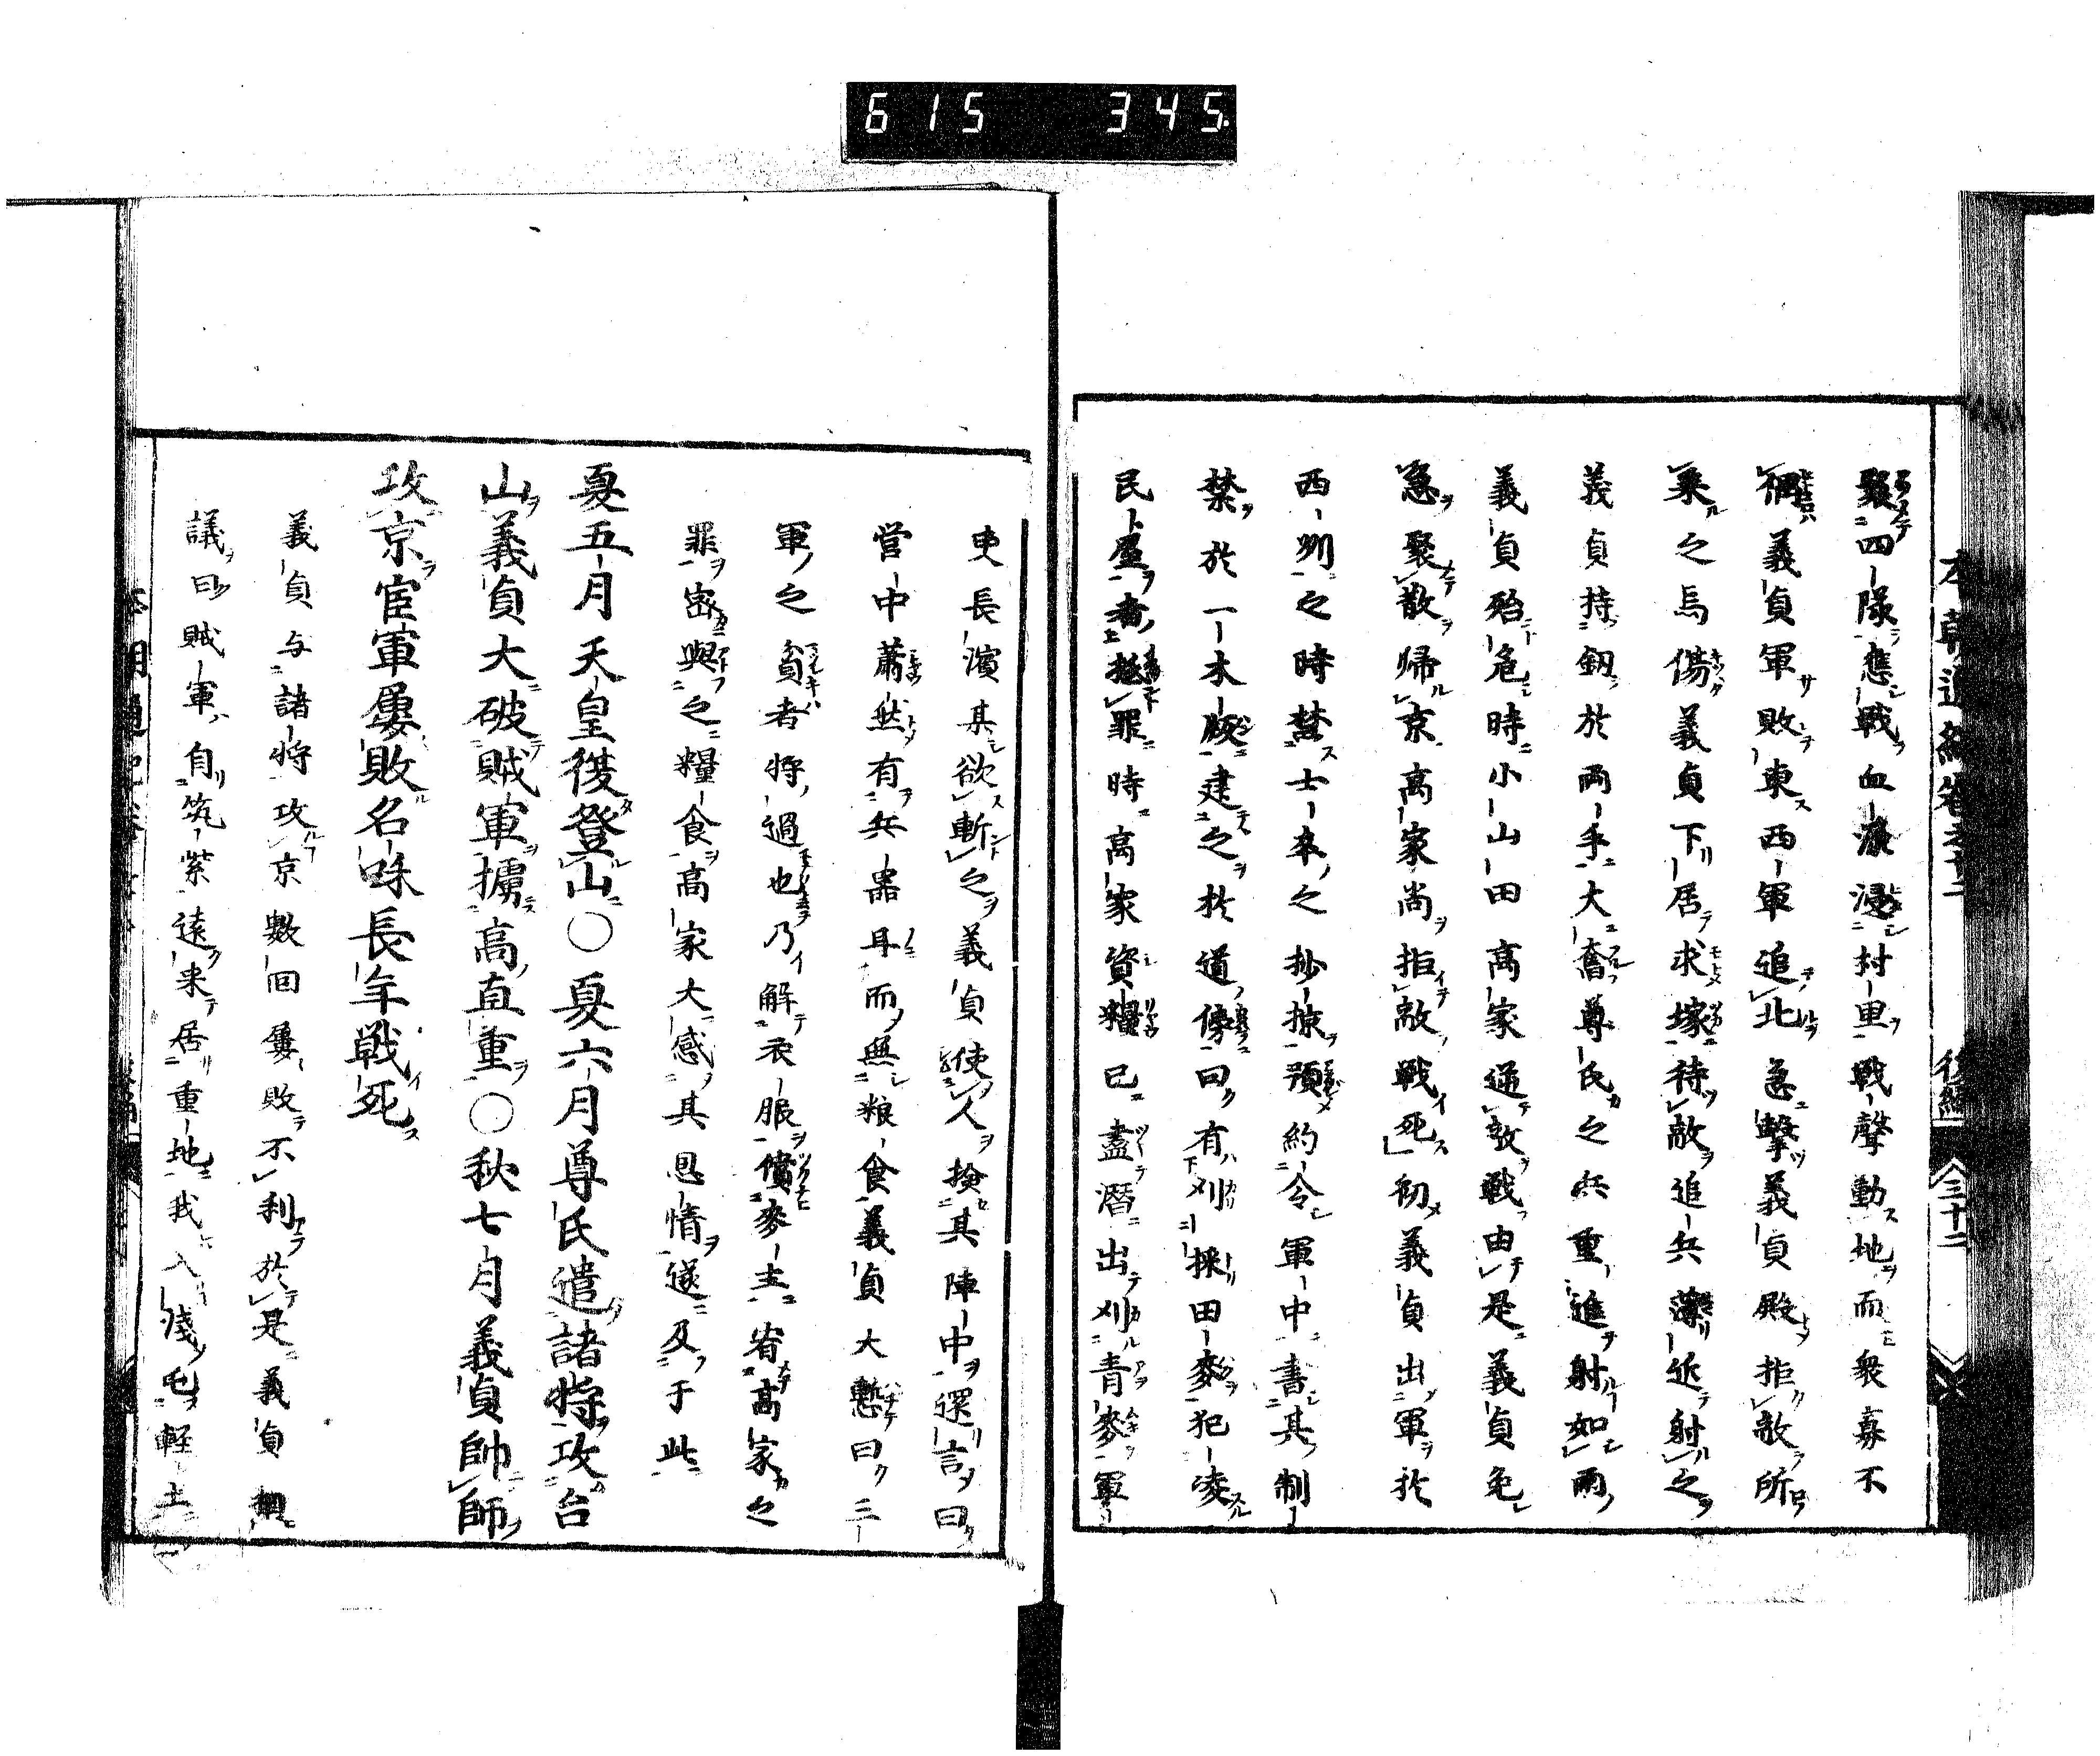 615 345
聚四隊應戰血瀑漫村里戰聲動地而衆寡不
稠義貞軍敗東西軍追北急擊義貞殿拒敵所
乗之馬傷義貞下居求塚待敵追兵薄近射之
義貞持釼於両手大奮尊氏之兵重進射如雨
義貞殆危時小山田高家逆敵戰由是義貞免
急聚散帰京高家尚拒敵戰死初義貞出軍於
西州之時禁士卒之抄掠預約令軍中書其制
禁於一木版建之於道傍曰有刈採田麥犯凌
民屋者抵罪時高家資糧已盡潛出刈青麥軍
吏長濱其欲斬之義貞使人撿其陣中還言曰
営中蕭然有兵器耳而無粮食義貞大慙曰三
軍之貧者将過也乃解衣服償麥主宥高家之
罪密與之糧食高家大感其恩情遂及于此
夏五月天皇復登山〇夏六月尊氏遣諸将攻台
山義貞大破賊軍擄高直重〇秋七月義貞帥師
攻京官軍屢敗名和長年戦死
義貞与諸将攻京數回屢敗不利於是義貞
議曰賊軍自筑紫遠来居重地我入淺軽土
本朝通紀巻之十二 後編 三十二